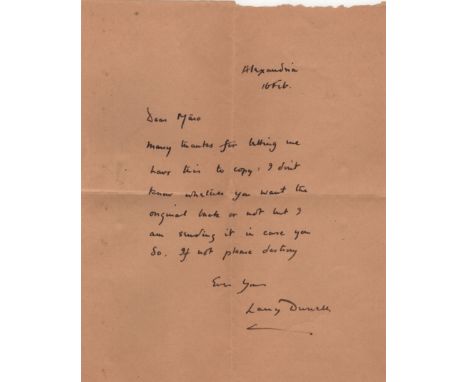 Alexandria
16 Feb.
Dear Miss
Many thanks for letting me
have this to copy. I don't
know whether you want the
original back or not but I
am sending it in case you
do. If not please destroy
Ever Yours
Larry Durrell